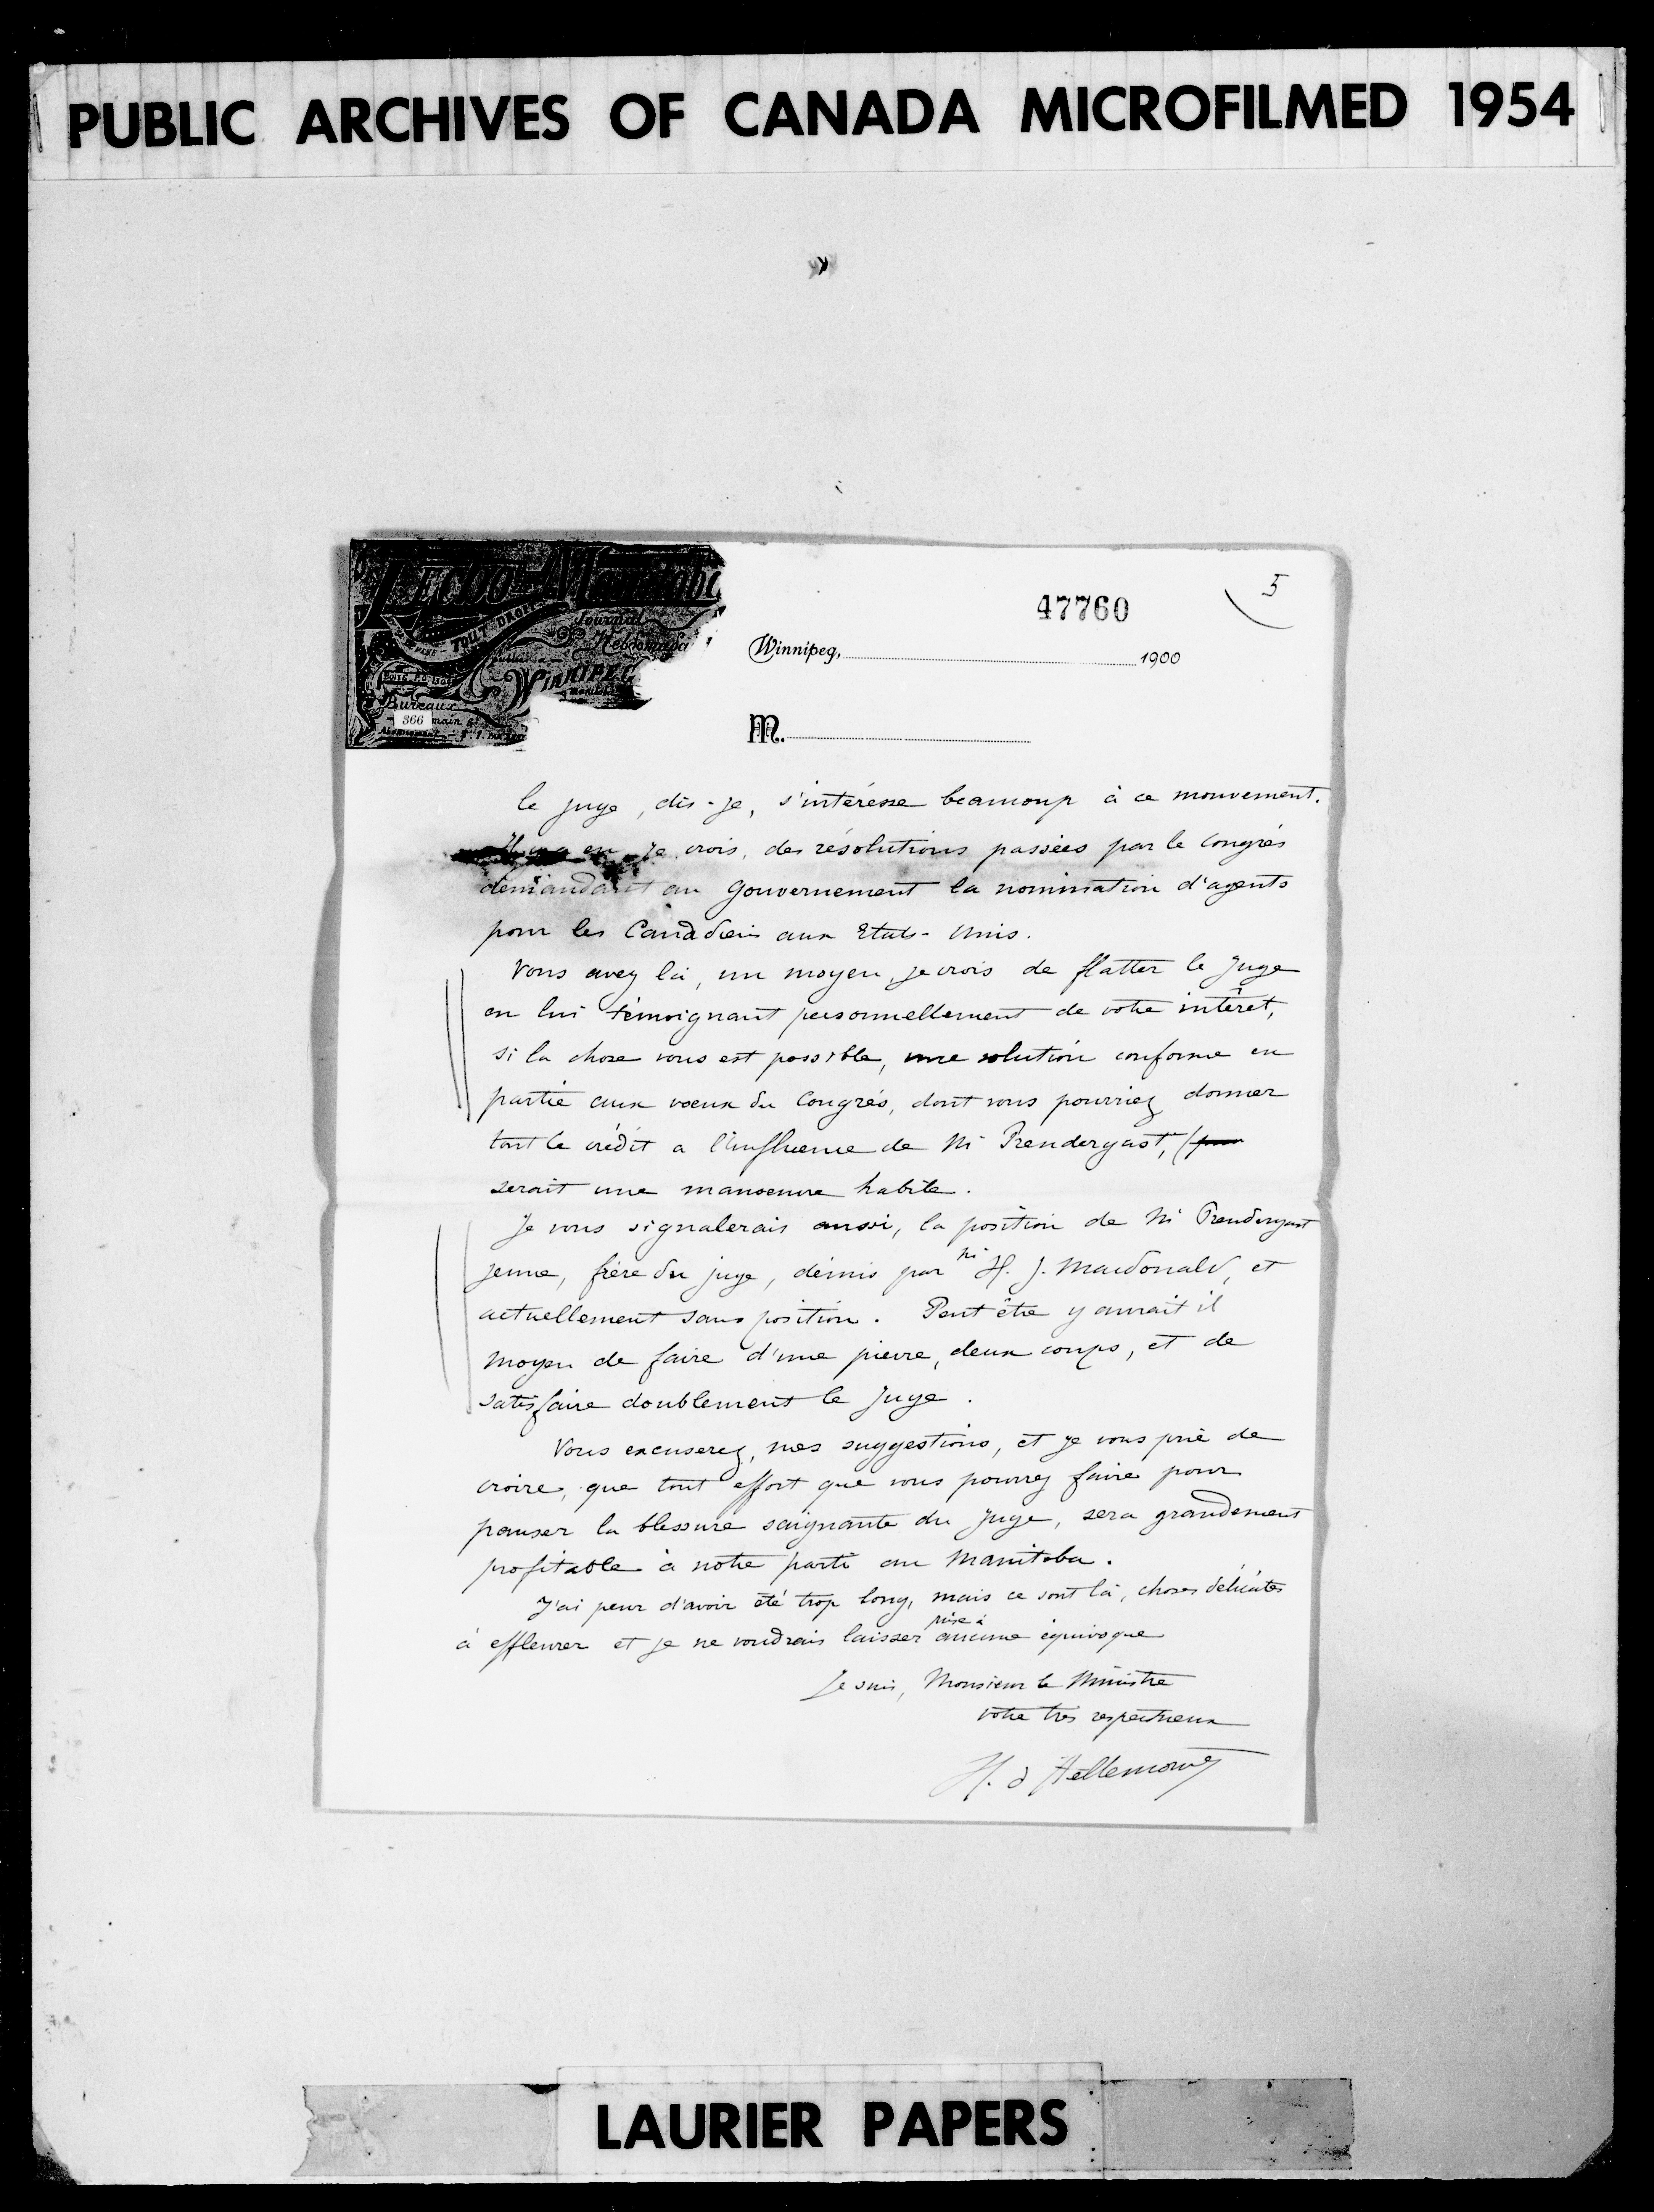 PUBLIC ARCHIVES OF CANADA MICROFILMED 1954
L'Echo de Manitoba
TOUT DROIT
Journal
Hebdomada
publié à
WINNIPEG
Bureaux
366 main
Abonnement
47760
5
Winnipeg, 1900
M.
le juge, dis-je, s'intéresse beaucoup à ce mouvement.
Il y a eu je crois, des résolutions passées par le Congrès
demandant au Gouvernement la nomination d'agents
pour les Canadiens aux Etats-Unis.
Vous avez là, un moyen, je crois de flatter le Juge
en lui témoignant personnellement de votre intêret,
si la chose vous est possible, une solution conforme en
partie aux voeux du Congrès, dont vous pourriez donner
tout le crédit a l'influence de Mr Prendergast,
serait une manoeuvre habile.
Je vous signalerais aussi, la position de Mr Prendergast
jeune, frère du juge, démis par Mr H. J. Macdonald, et
actuellement sans position. Peut être y aurait il
moyen de faire d'une pierre, deux coups, et de
satisfaire doublement le Juge.
Vous excuserez, mes suggestions, et je vous prie de
croire, que tout effort que vous pourrez faire pour
panser la blessure saignante du Juge, sera grandement
profitable à notre parti au Manitoba.
J'ai peur d'avoir été trop long, mais ce sont là, choses délicates
à effleurer et je ne voudrais laisser prise à aucune équivoque
Je suis, Monsieur le Ministre
votre très respectueux
H. d'Hellencourt
LAURIER PAPERS